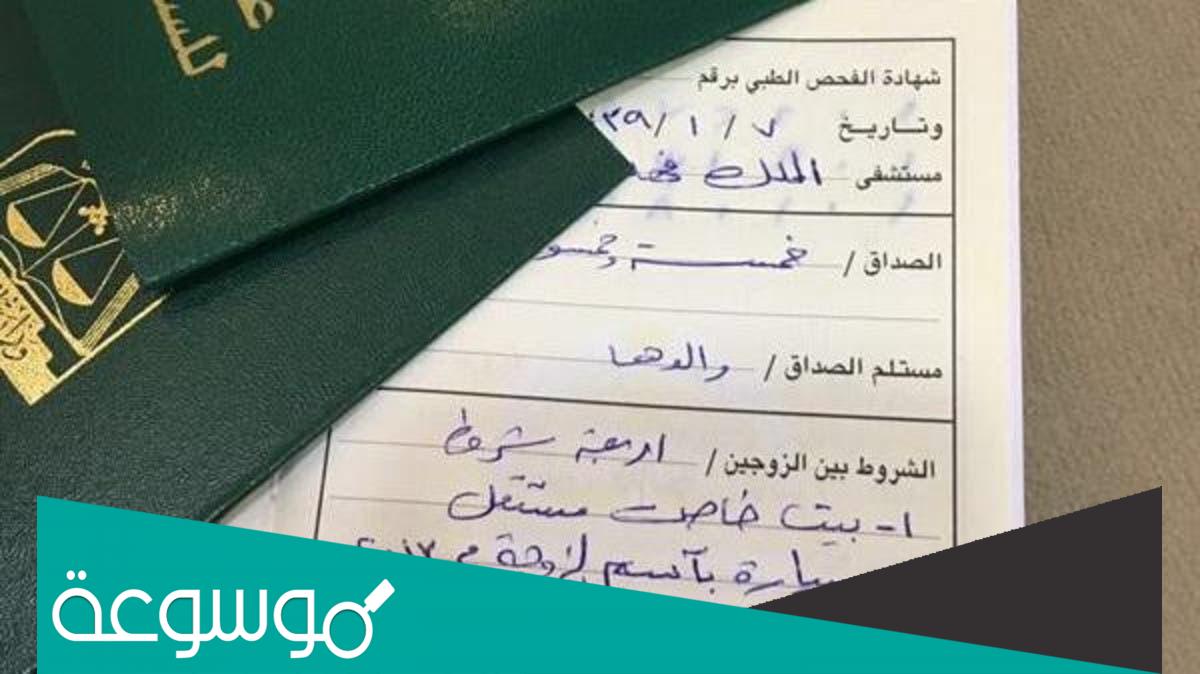 شهادة الفحص الطبي برقم
وتاريخ ٧ / ١ / ٣٩
مستشفى الملك فهد
الصداق / خمسة وخمسو
مستلم الصداق / والدها
الشروط بين الزوجين / اربعة شروط
١- بيت خاص مستقل
سيارة بآسم الزوجة م ٢٠١٧
موسوعة